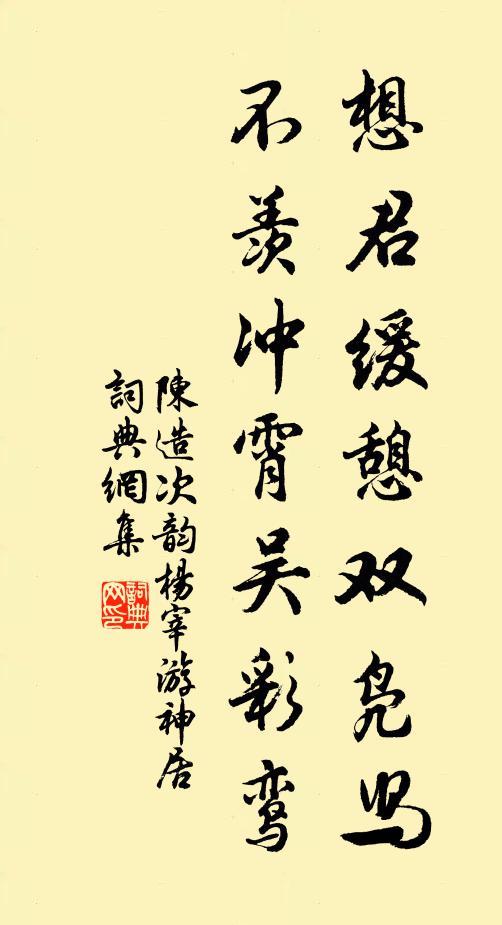 想君缓憩双凫舄
不羡冲霄吴彩鸾
陳造次韵楊宰游神居
詞典網集
詞典网印